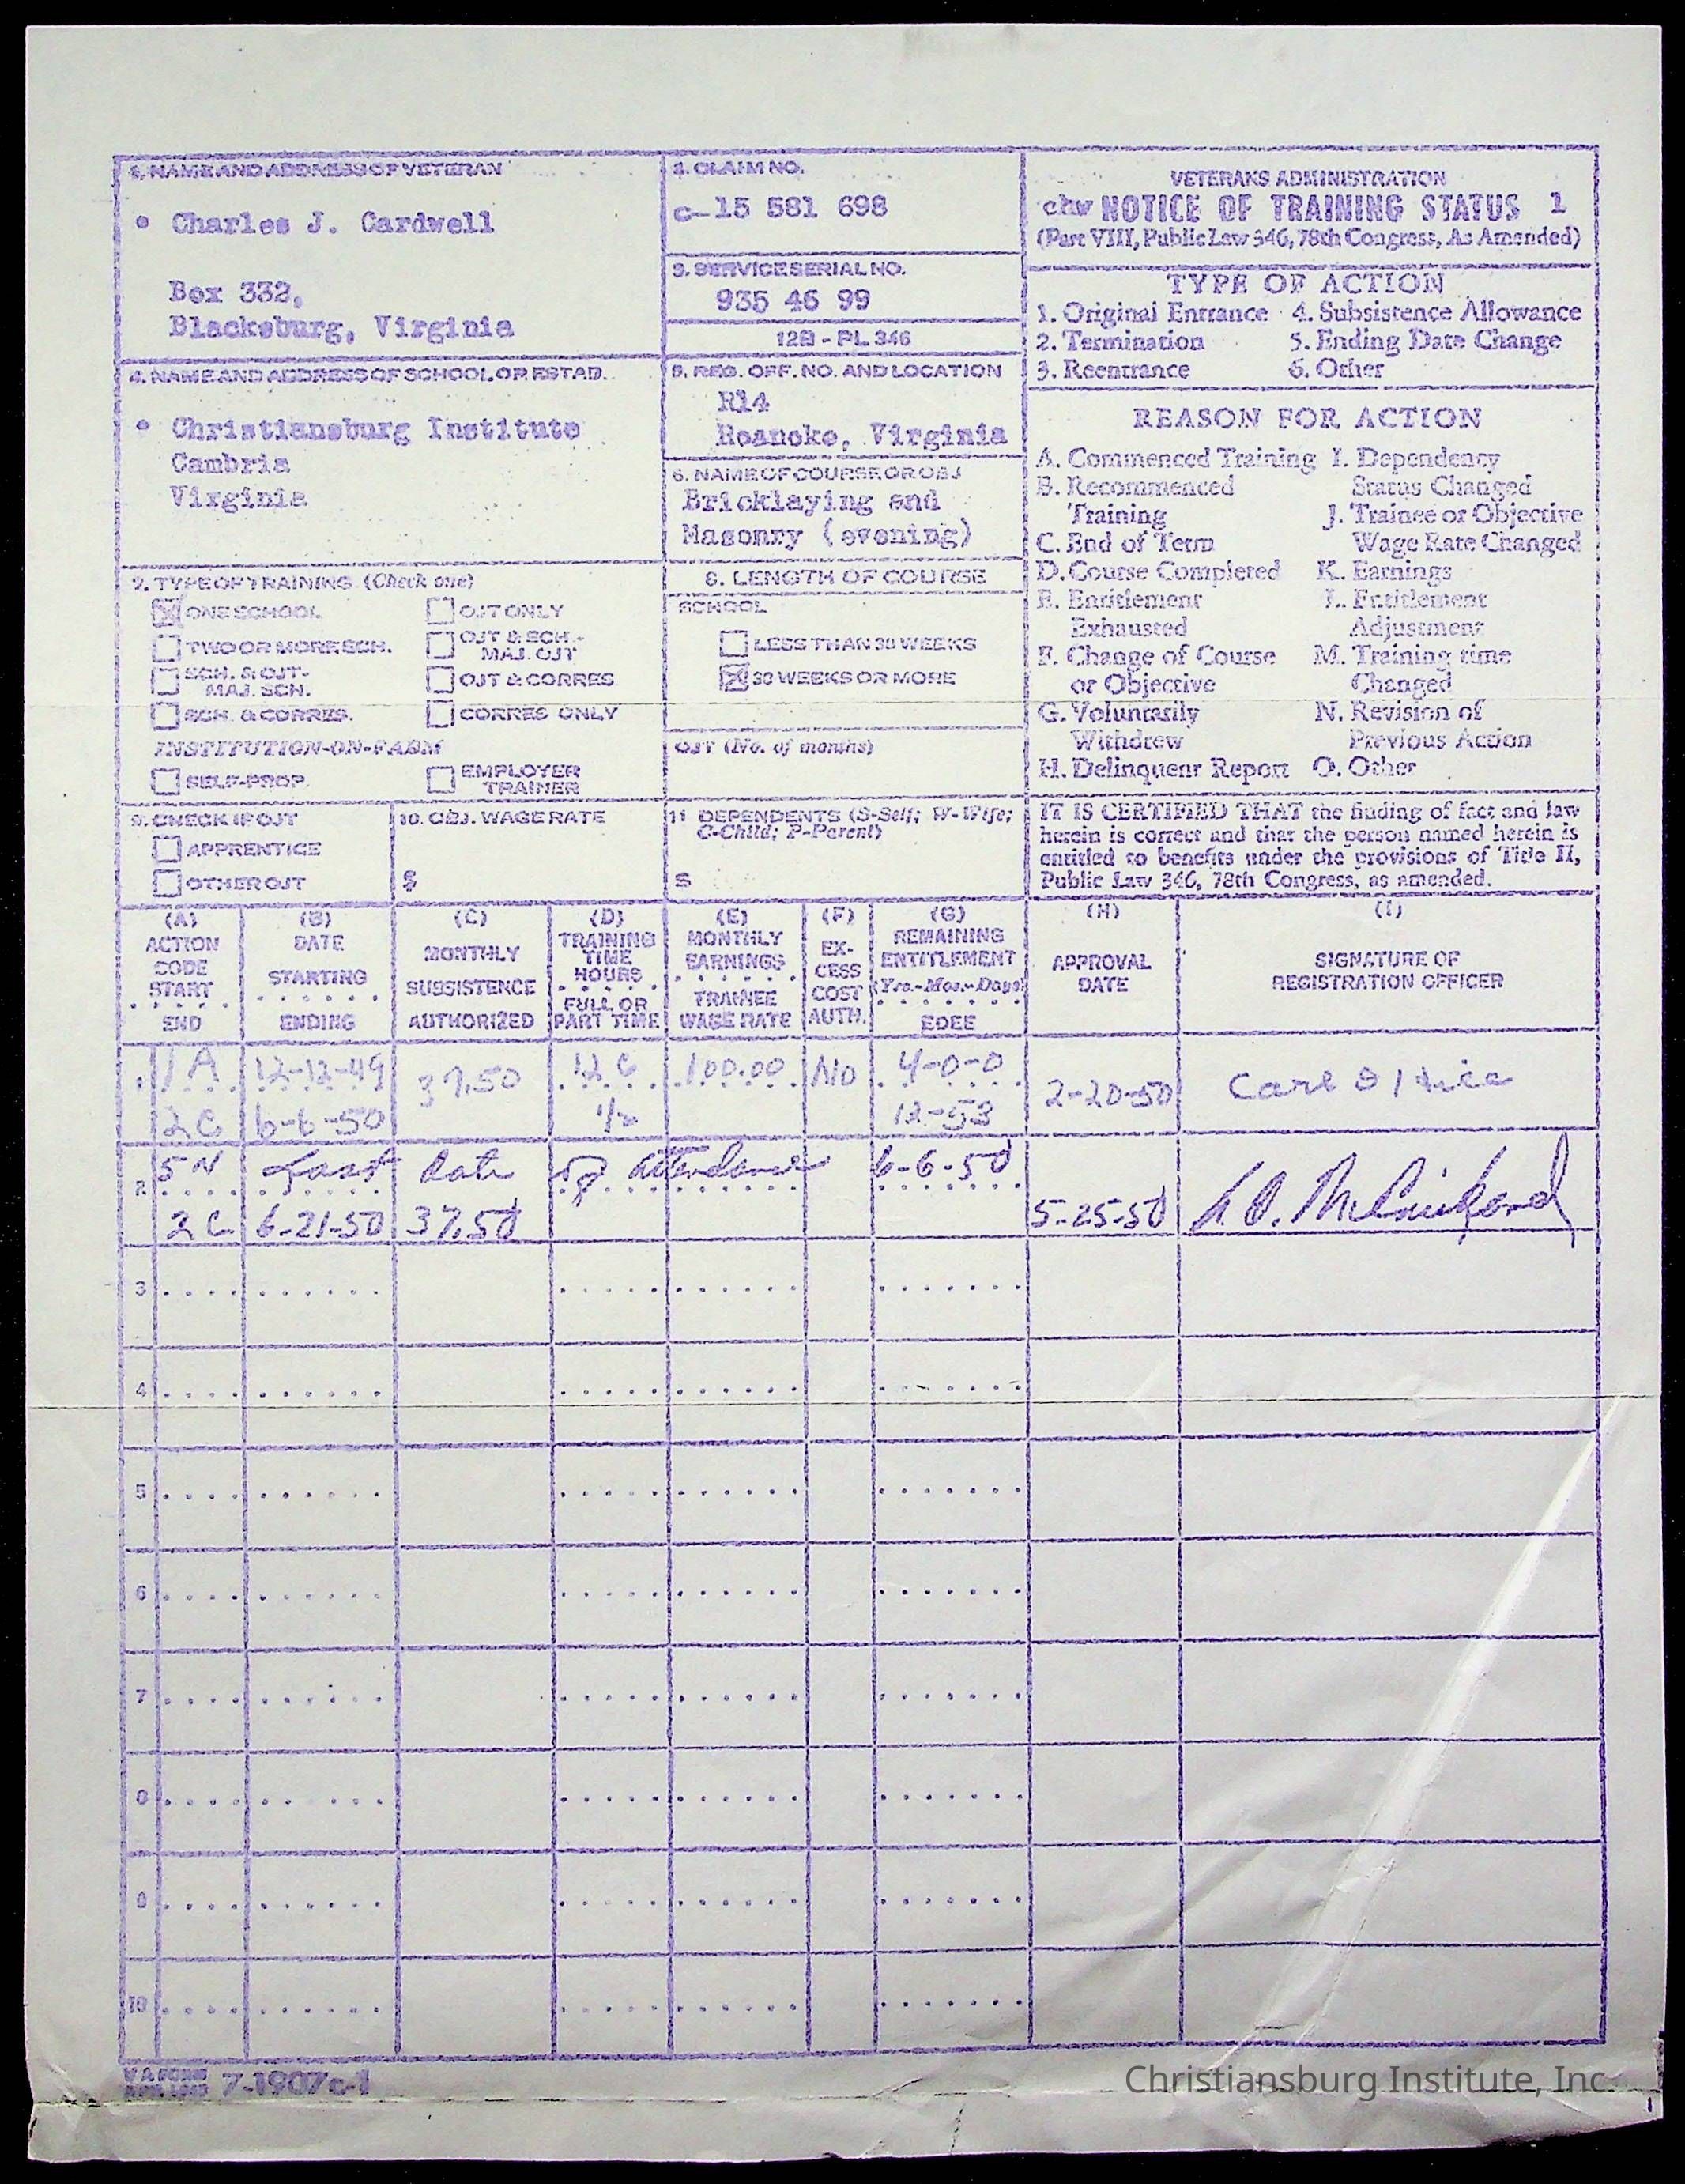 1. NAME AND ADDRESS OF VETERAN
Charles J. Cardwell
Box 332,
Blacksburg, Virginia
2. CLAIM NO.
C-15 581 698
3. SERVICE SERIAL NO.
935 46 99
12B - PL 346
VETERANS ADMINISTRATION
chw NOTICE OF TRAINING STATUS 1
(Part VIII, Public Law 346, 78th Congress, As Amended)
TYPE OF ACTION
1. Original Entrance 4. Subsistence Allowance
2. Termination 5. Ending Date Change
3. Reentrance 6. Other
4. NAME AND ADDRESS OF SCHOOL OR ESTAB.
Christiansburg Institute
Cambria
Virginia
5. REG. OFF. NO. AND LOCATION
R14
Roanoke, Virginia
6. NAME OF COURSE OR OBJ
Bricklaying and
Masonry (evening)
REASON FOR ACTION
A. Commenced Training I. Dependency
B. Recommenced Status Changed
Training J. Trainee or Objective
C. End of Term Wage Rate Changed
D. Course Completed K. Earnings
E. Entitlement L. Entitlement
Exhausted Adjustment
F. Change of Course M. Training time
or Objective Changed
G. Voluntarily N. Revision of
Withdrew Previous Action
H. Delinquent Report O. Other
7. TYPE OF TRAINING (Check one)
X ONE SCHOOL OJT ONLY
TWO OR MORE SCH. OJT & SCH.-
MAJ. OJT
SCH. & OJT- OJT & CORRES
MAJ. SCH.
SCH. & CORRES. CORRES ONLY
INSTITUTION-ON-FARM
SELF-PROP. EMPLOYER
TRAINER
8. LENGTH OF COURSE
SCHOOL
LESS THAN 30 WEEKS
X 30 WEEKS OR MORE
OJT (No. of months)
9. CHECK IF OJT
APPRENTICE
OTHER OJT
10. OBJ. WAGE RATE
$
11 DEPENDENTS (S-Self; W-Wife;
C-Child; P-Parent)
S
IT IS CERTIFIED THAT the finding of fact and law
herein is correct and that the person named herein is
entitled to benefits under the provisions of Title II,
Public Law 346, 78th Congress, as amended.
(A) (B) (C) (D) (E) (F) (G) (H) (I)
ACTION
CODE
START
END
DATE
STARTING
ENDING
MONTHLY
SUBSISTENCE
AUTHORIZED
TRAINING
TIME
HOURS
FULL OR
PART TIME
MONTHLY
EARNINGS
TRAINEE
WAGE RATE
EX-
CESS
COST
AUTH.
REMAINING
ENTITLEMENT
(Yrs.-Mos.-Days)
EDEE
APPROVAL
DATE
SIGNATURE OF
REGISTRATION OFFICER
1 1A 12-12-49 37.50 12 C 100.00 No 4-0-0 2-20-50
2C 6-6-50 1/2 12-53
2 5N Last Date of attendance 6-6-50
2C 6-21-50 37.50 5-25-50
3
4
5
6
7
8
9
10
V A FORM
7-1907c-1
Christiansburg Institute, Inc.